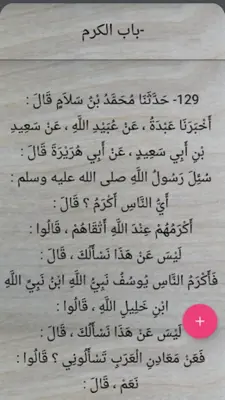 -باب الكرم
129- حَدَّثَنَا مُحَمَّدُ بْنُ سَلاَمٍ قَالَ :
أَخْبَرَنَا عَبْدَةُ ، عَنْ عُبَيْدِ اللَّهِ ، عَنْ سَعِيدِ
بْنِ أَبِي سَعِيدٍ ، عَنْ أَبِي هُرَيْرَةَ قَالَ :
سُئِلَ رَسُولُ اللَّهِ صلى الله عليه وسلم :
أَيُّ النَّاسِ أَكْرَمُ ؟ قَالَ :
أَكْرَمُهُمْ عِنْدَ اللَّهِ أَتْقَاهُمْ ، قَالُوا :
لَيْسَ عَنْ هَذَا نَسْأَلُكَ ، قَالَ :
فَأَكْرَمُ النَّاسِ يُوسُفُ نَبِيُّ اللَّهِ ابْنُ نَبِيِّ اللَّهِ
ابْنِ خَلِيلِ اللَّهِ ، قَالُوا :
لَيْسَ عَنْ هَذَا نَسْأَلُكَ ، قَالَ :
فَعَنْ مَعَادِنِ الْعَرَبِ تَسْأَلُونِي ؟ قَالُوا :
نَعَمْ ، قَالَ :